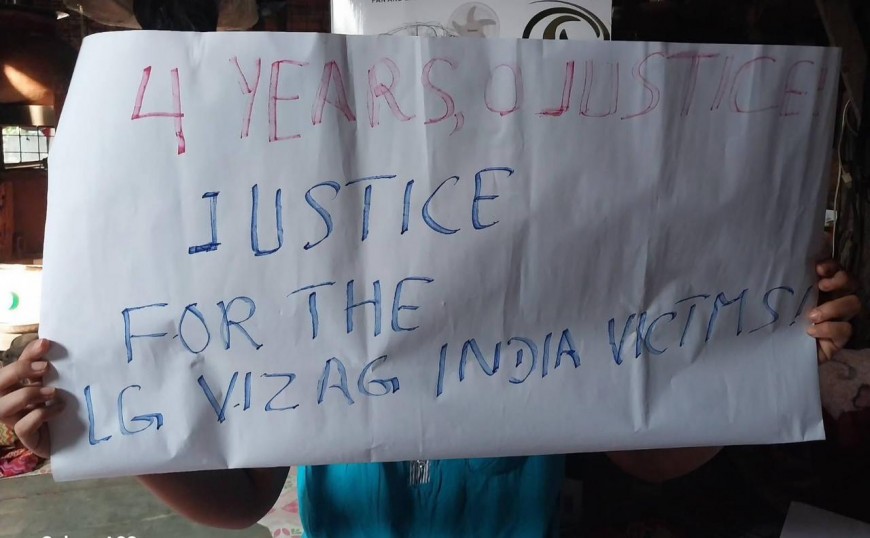 4 YEARS, 0 JUSTICE!
JUSTICE
FOR THE
LG VIZAG INDIA VICTMS!